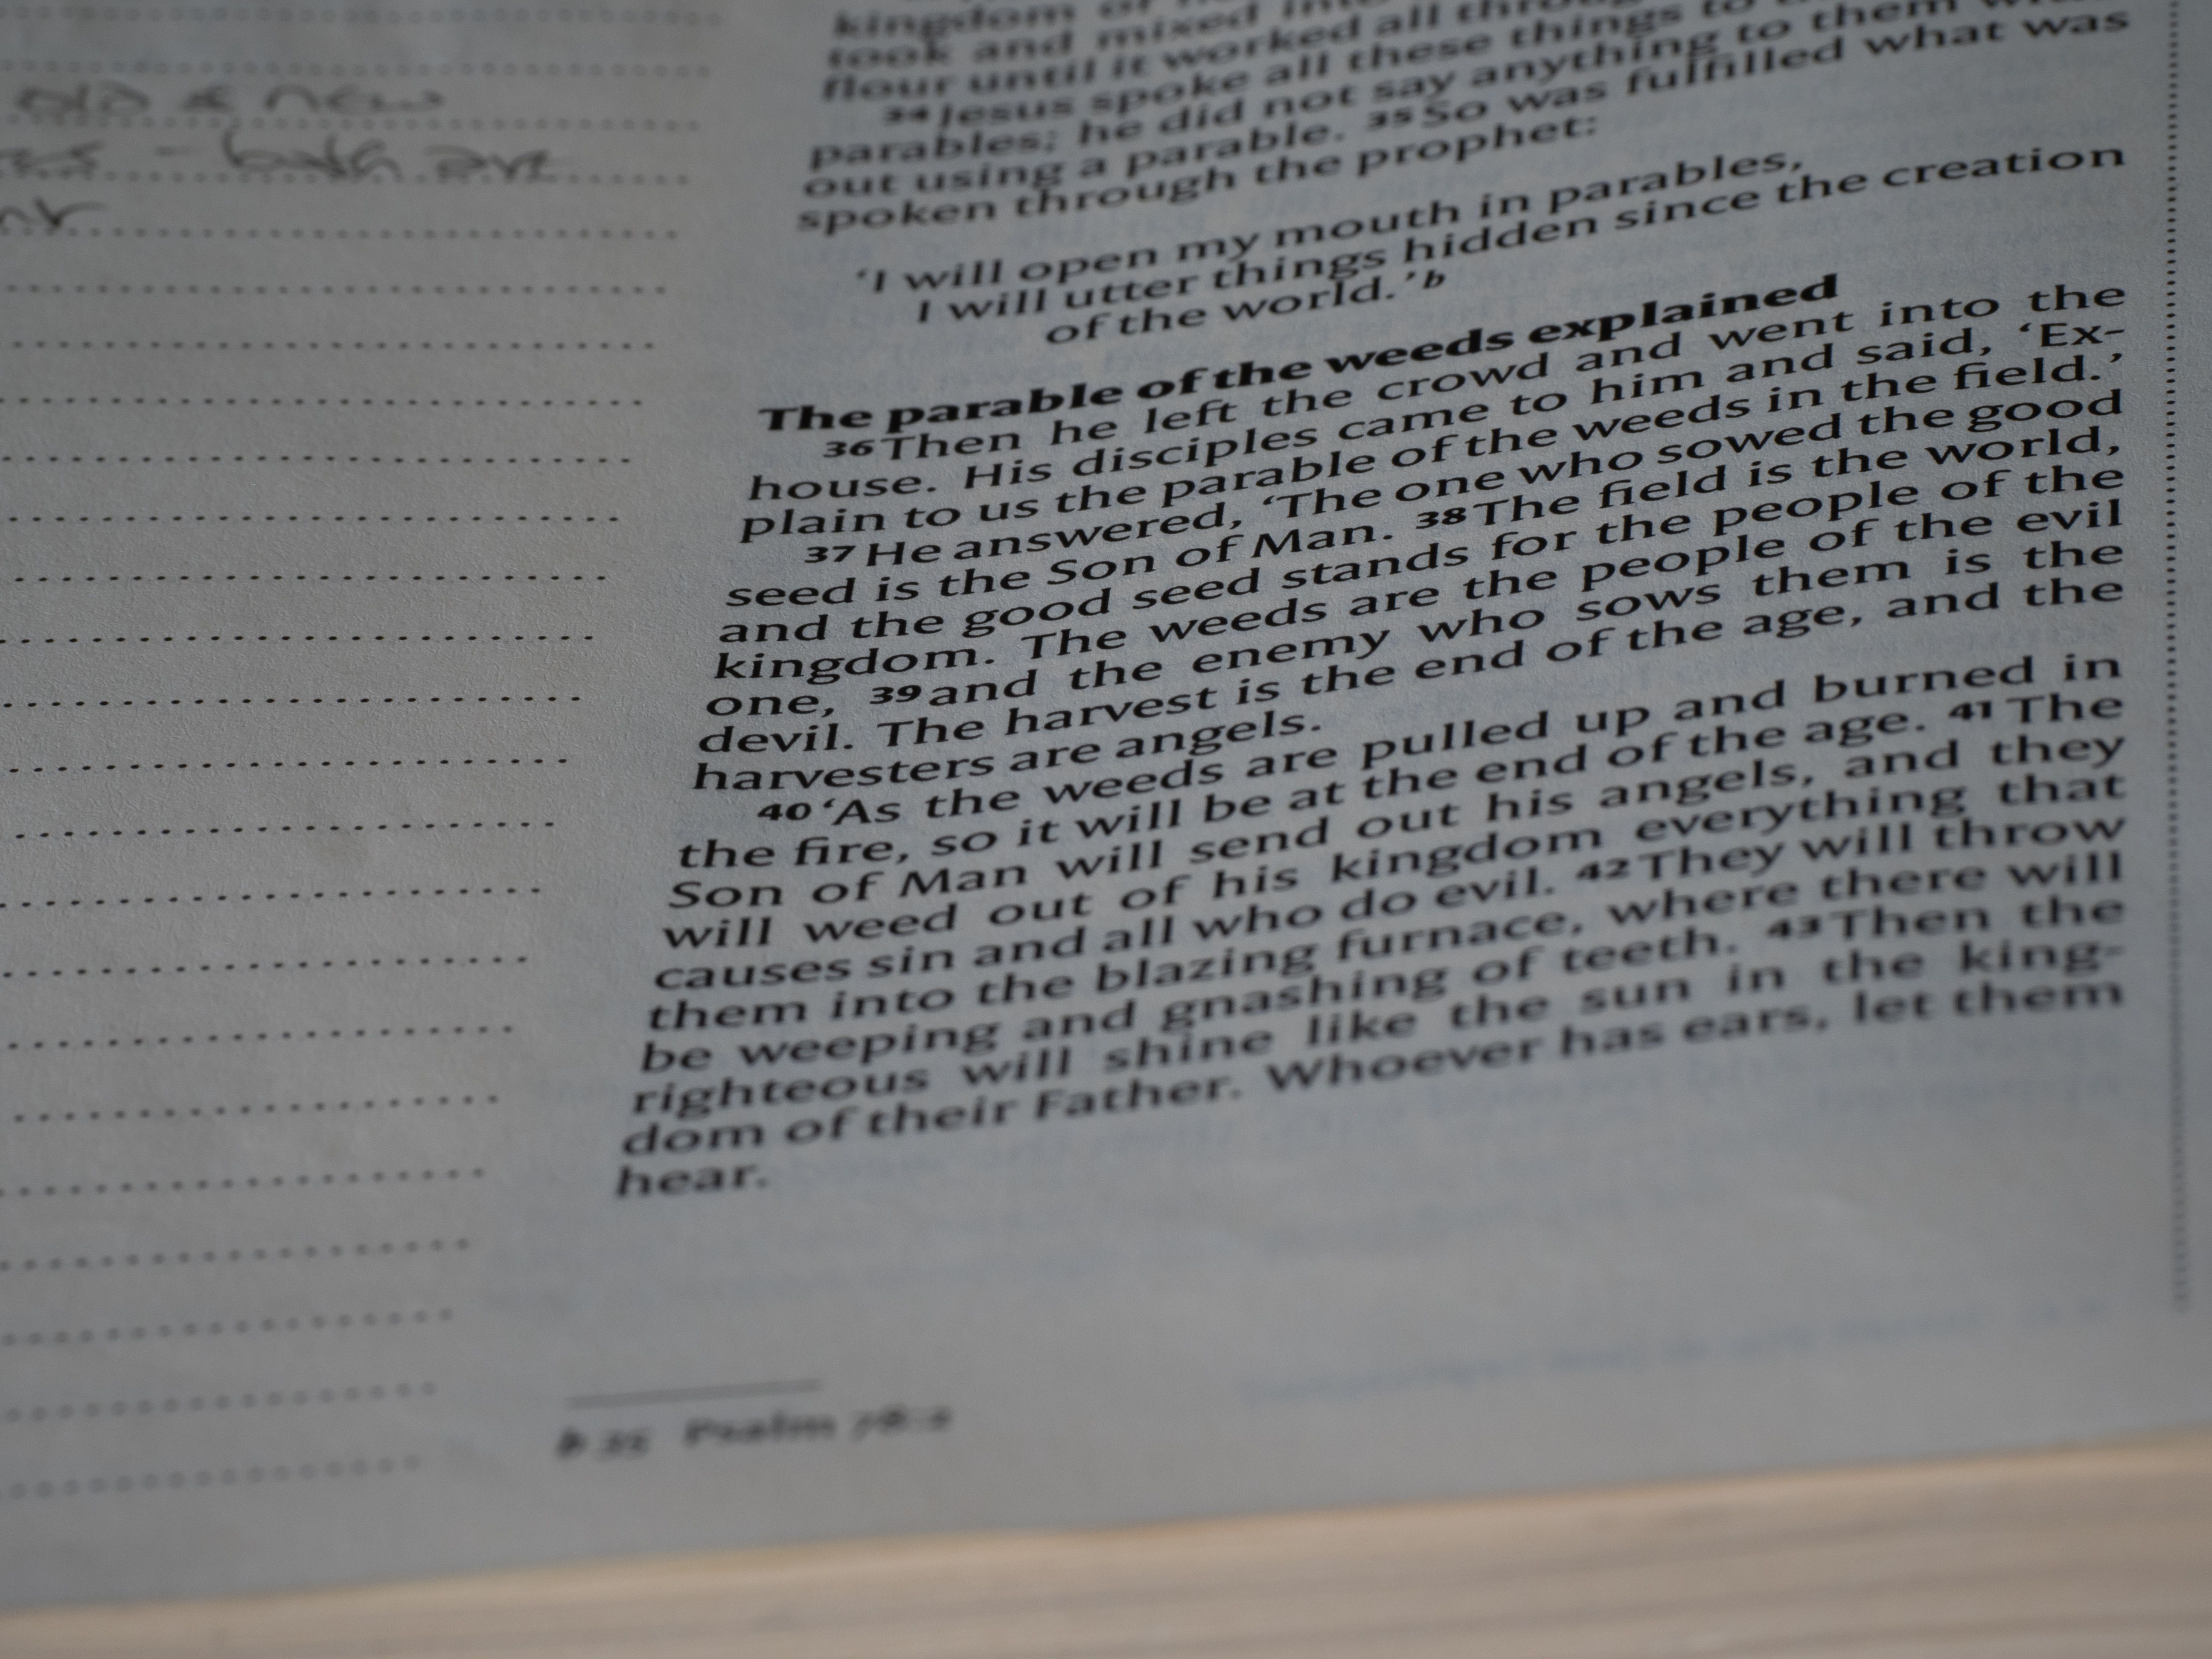 old & new
- both are
kingdom of
took and mixed into
flour until it worked all through
34 Jesus spoke all these things to
parables; he did not say anything to them with-
out using a parable. 35 So was fulfilled what was
spoken through the prophet:
‘I will open my mouth in parables,
I will utter things hidden since the creation
of the world.’ b
The parable of the weeds explained
36 Then he left the crowd and went into the
house. His disciples came to him and said, ‘Ex-
plain to us the parable of the weeds in the field.’
37 He answered, ‘The one who sowed the good
seed is the Son of Man. 38 The field is the world,
and the good seed stands for the people of the
kingdom. The weeds are the people of the evil
one, 39 and the enemy who sows them is the
devil. The harvest is the end of the age, and the
harvesters are angels.
40 ‘As the weeds are pulled up and burned in
the fire, so it will be at the end of the age. 41 The
Son of Man will send out his angels, and they
will weed out of his kingdom everything that
causes sin and all who do evil. 42 They will throw
them into the blazing furnace, where there will
be weeping and gnashing of teeth. 43 Then the
righteous will shine like the sun in the king-
dom of their Father. Whoever has ears, let them
hear.
b 35 Psalm 78:2